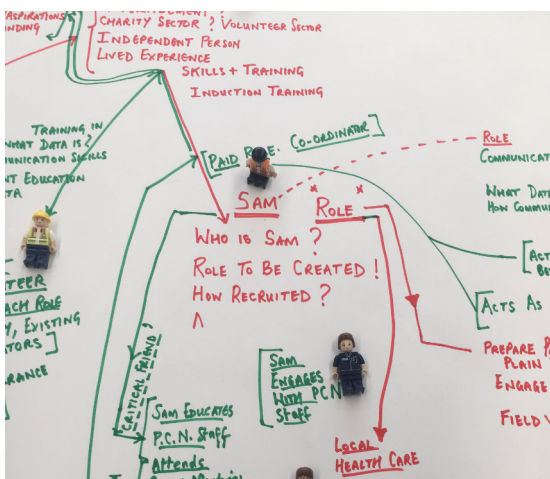 ASPIRATIONS
CHARITY SECTOR ? VOLUNTEER SECTOR
INDEPENDENT PERSON
LIVED EXPERIENCE
SKILLS + TRAINING
INDUCTION TRAINING
TRAINING IN
WHAT DATA IS?
MUNICATION SKILLS
NT EDUCATION
TA
[PAID ROLE. CO-ORDINATOR]
ROLE
COMMUNICAT
WHAT DAT
HOW COMMU
SAM ROLE
WHO IS SAM ?
ROLE TO BE CREATED !
HOW RECRUITED ?
[ACT
BE
[ACTS AS
PREPARE P
PLAIN
ENGAGE
FIELD
TEER
ACH ROLE
, EXISTING
ATORS ]
RANCE
CRITICAL FRIEND?
[SAM
ENGAGES
WITH PCN
STAFF
[SAM EDUCATES
P.C.N. STAFF
ATTENDS
LOCAL
HEALTH CARE